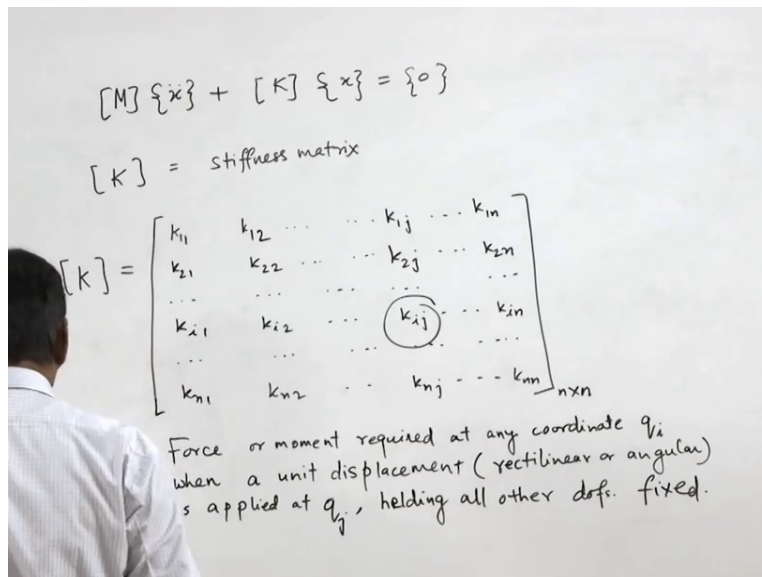 [M] {ẍ} + [K] {x} = {0}
[K] = stiffness matrix
[K] = [ k11 k12 ... ... k1j ... k1n
k21 k22 ... ... k2j ... k2n
... ... ... ... ...
ki1 ki2 ... kij ... kin
... ... ... ... ...
kn1 kn2 .. knj ... knn ] n×n
Force or moment required at any coordinate qi
when a unit displacement (rectilinear or angular)
s applied at qj, helding all other dofs. fixed.